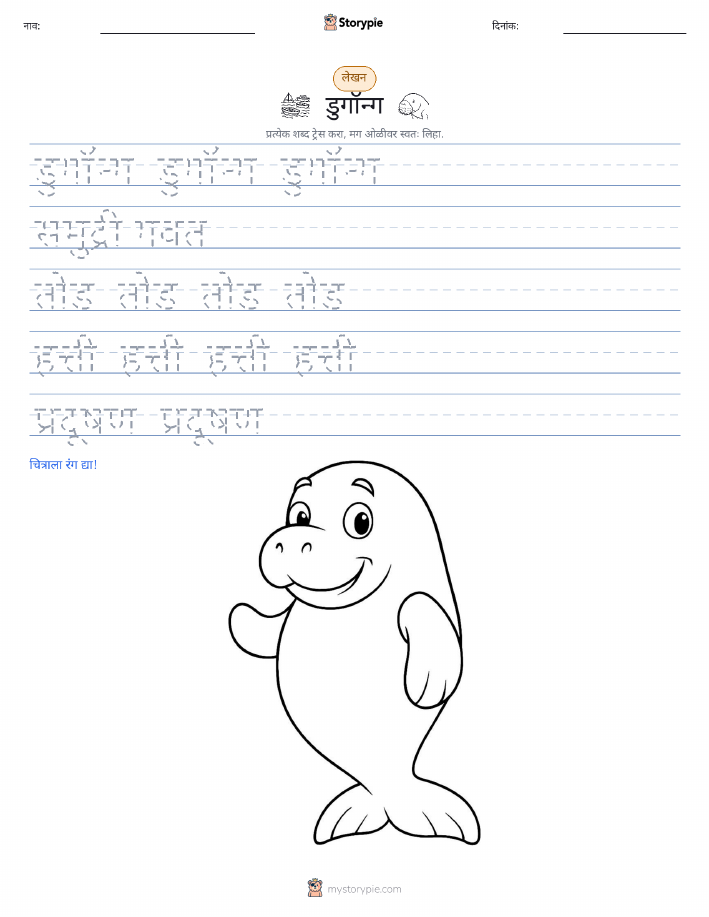 नाव: Storypie दिनांक:
लेखन
डुगॉन्ग
प्रत्येक शब्द ट्रेस करा, मग ओळीवर स्वतः लिहा.
डुगॉन्ग डुगॉन्ग डुगॉन्ग
समुद्री गवत
तोंड तोंड तोंड तोंड
हत्ती हत्ती हत्ती हत्ती
प्रदूषण प्रदूषण
चित्राला रंग द्या!
mystorypie.com